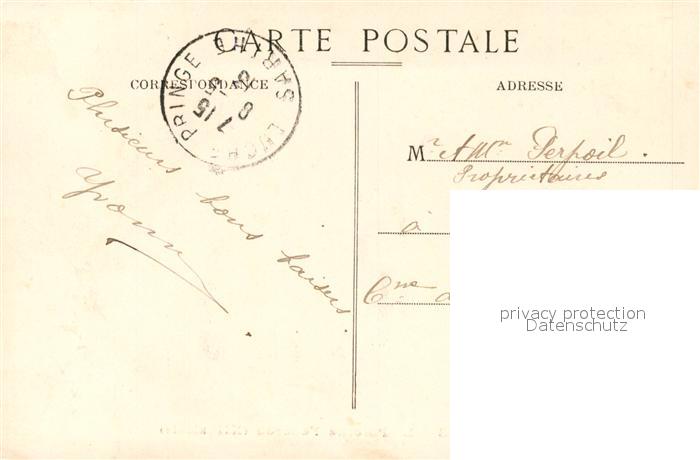 CARTE POSTALE
CORRESPONDANCE
ADRESSE
PRINGE
7 15
8 - 5
Plusieurs bons baisers.
Yvonne
Mr & Mme Perpoil.
Propriétaires
à
Cne
privacy protection
Datenschutz